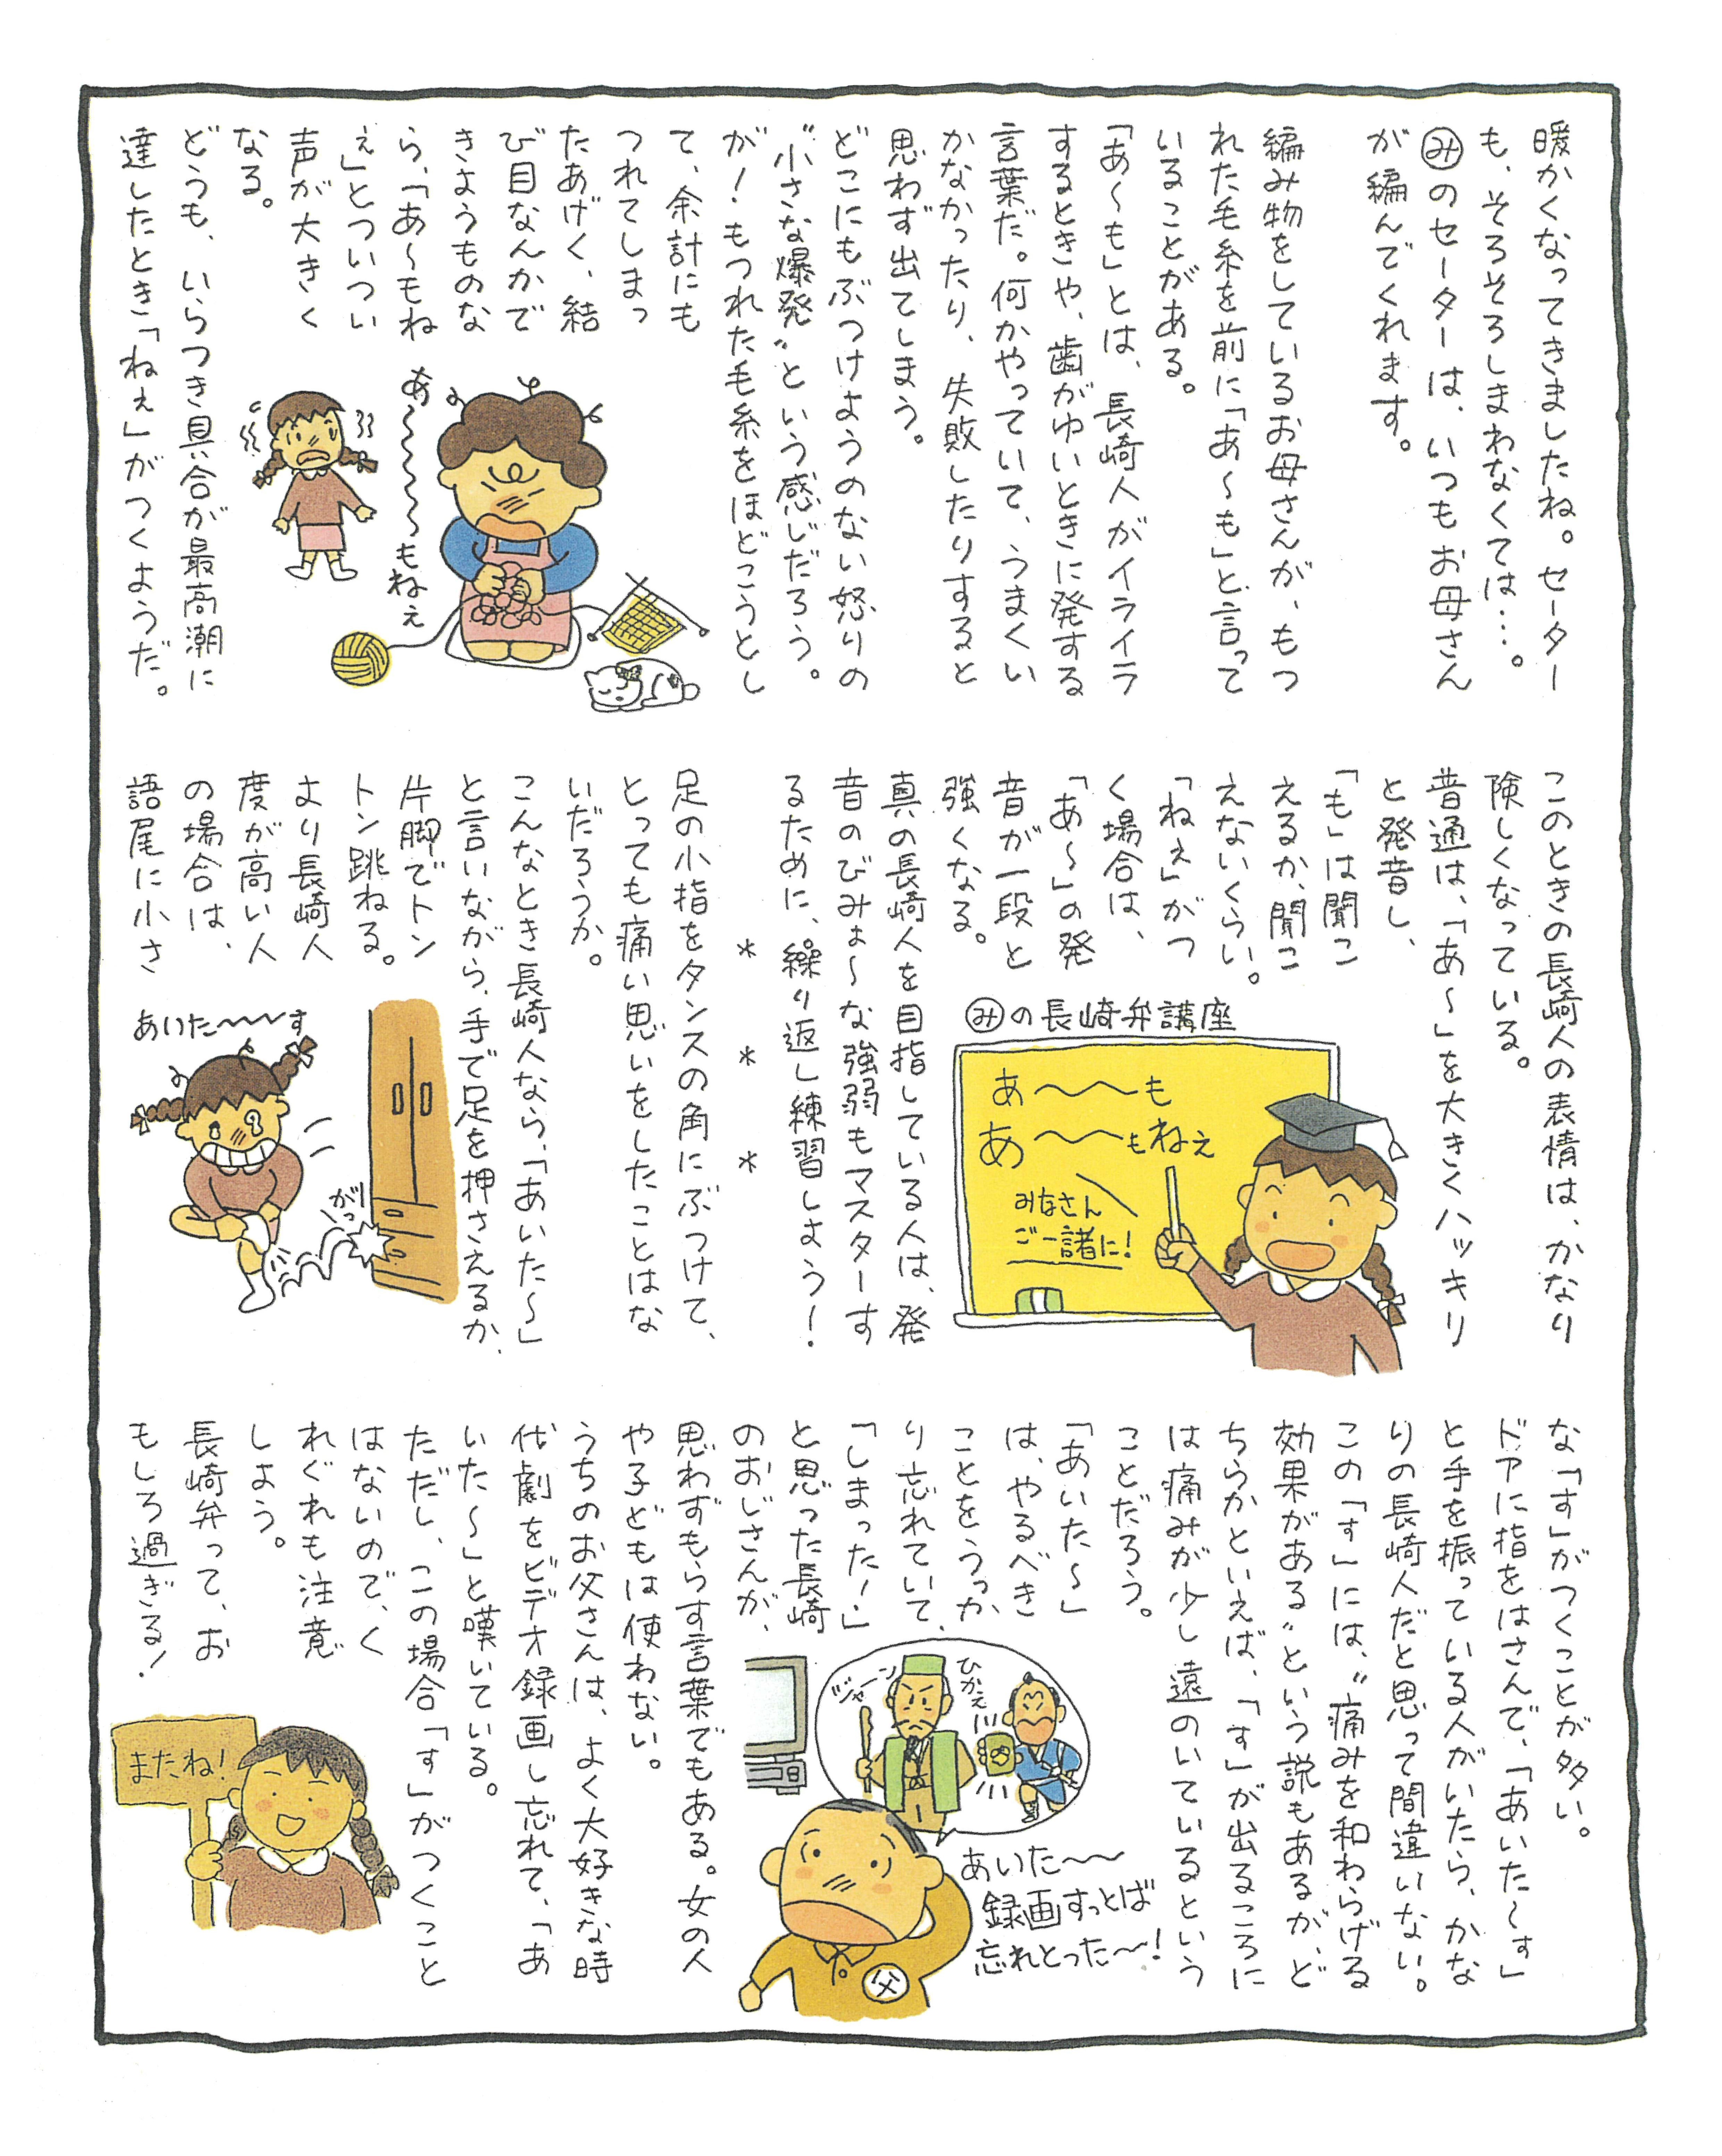 暖かくなってきましたね。セーター
も、そろそろしまわなくては…。
みのセーターは、いつもお母さん
が編んでくれます。
編み物をしているお母さんが、もつ
れた毛糸を前に「あ〜も」と言って
いることがある。
「あ〜も」とは、長崎人がイライラ
するときや、歯がゆいときに発する
言葉だ。何かやっていて、うまくい
かなかったり、失敗したりすると
思わず出てしまう。
どこにもぶつけようのない怒りの
〝小さな爆発〟という感じだろう。
が!もつれた毛糸をほどこうとし
て、余計にも
つれてしまっ
たあげく、結
び目なんかで
きようものな
ら、「あ〜もね
ぇ」とついつい
声が大きく
なる。
どうも、いらつき具合が最高潮に
達したとき「ねぇ」がつくようだ。
あ〜〜〜〜〜もねぇ
このときの長崎人の表情は、かなり
険しくなっている。
普通は、「あ〜」を大きくハッキリ
と発音し、
「も」は聞こ
えるか、聞こ
えないくらい。
「ねぇ」がつ
く場合は、
「あ〜」の発
音が一段と
強くなる。
真の長崎人を目指している人は、発
音のびみょ〜な強弱もマスターす
るために、繰り返し練習しよう!
みの長崎弁講座
あ〜〜も
あ〜〜もねぇ
みなさん
ご一諸に!
* * *
足の小指をタンスの角にぶつけて、
とっても痛い思いをしたことはな
いだろうか。
こんなとき長崎人なら、「あいた〜」
と言いながら、手で足を押さえるか、
片脚でトン
トン跳ねる。
より長崎人
度が高い人
の場合は、
語尾に小さ
あいた〜〜す
がつ
な「す」がつくことが多い。
ドアに指をはさんで、「あいた〜す」
と手を振っている人がいたら、かな
りの長崎人だと思って間違いない。
この「す」には、〝痛みを和わらげる
効果がある〟という説もあるが、ど
ちらかといえば、「す」が出るころに
は痛みが少し遠のいているという
ことだろう。
「あいた〜」
は、やるべき
ことをうっか
り忘れていて、
「しまった!」
と思った長崎
のおじさんが、
思わずもらす言葉でもある。女の人
や子どもは使わない。
うちのお父さんは、よく大好きな時
代劇をビデオ録画し忘れて、「あ
いた〜」と嘆いている。
ただし、この場合「す」がつくこと
はないので、く
れぐれも注意
しよう。
長崎弁って、お
もしろ過ぎる!
ひかえ
ジャーン
あいた〜〜
録画すっとば
忘れとった〜!
父
またね!